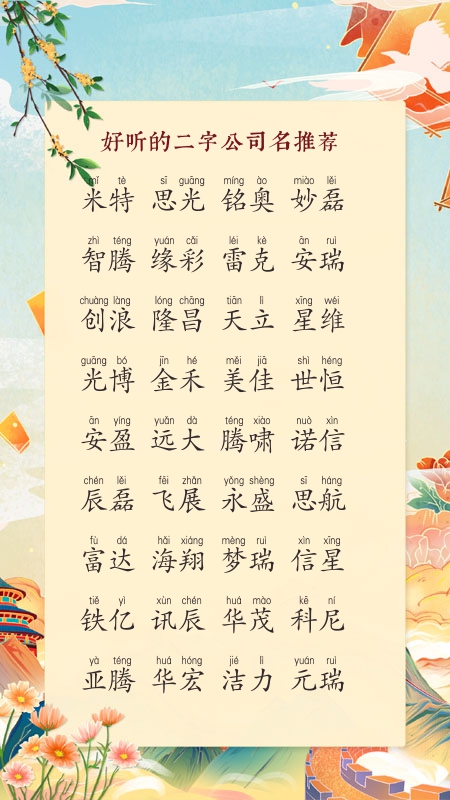 好听的二字公司名推荐
mǐ tè sī guāng míng ào miào lěi
米特 思光 铭奥 妙磊
zhì téng yuán cǎi léi kè ān ruì
智腾 缘彩 雷克 安瑞
chuàng làng lóng chāng tiān lì xīng wéi
创浪 隆昌 天立 星维
guāng bó jīn hé měi jiā shì héng
光博 金禾 美佳 世恒
ān yíng yuǎn dà téng xiào nuò xìn
安盈 远大 腾啸 诺信
chén lěi fēi zhǎn yǒng shèng sī háng
辰磊 飞展 永盛 思航
fù dá hǎi xiáng mèng ruì xìn xīng
富达 海翔 梦瑞 信星
tiě yì xùn chén huá mào kē ní
铁亿 讯辰 华茂 科尼
yà téng huá hóng jié lì yuán ruì
亚腾 华宏 洁力 元瑞